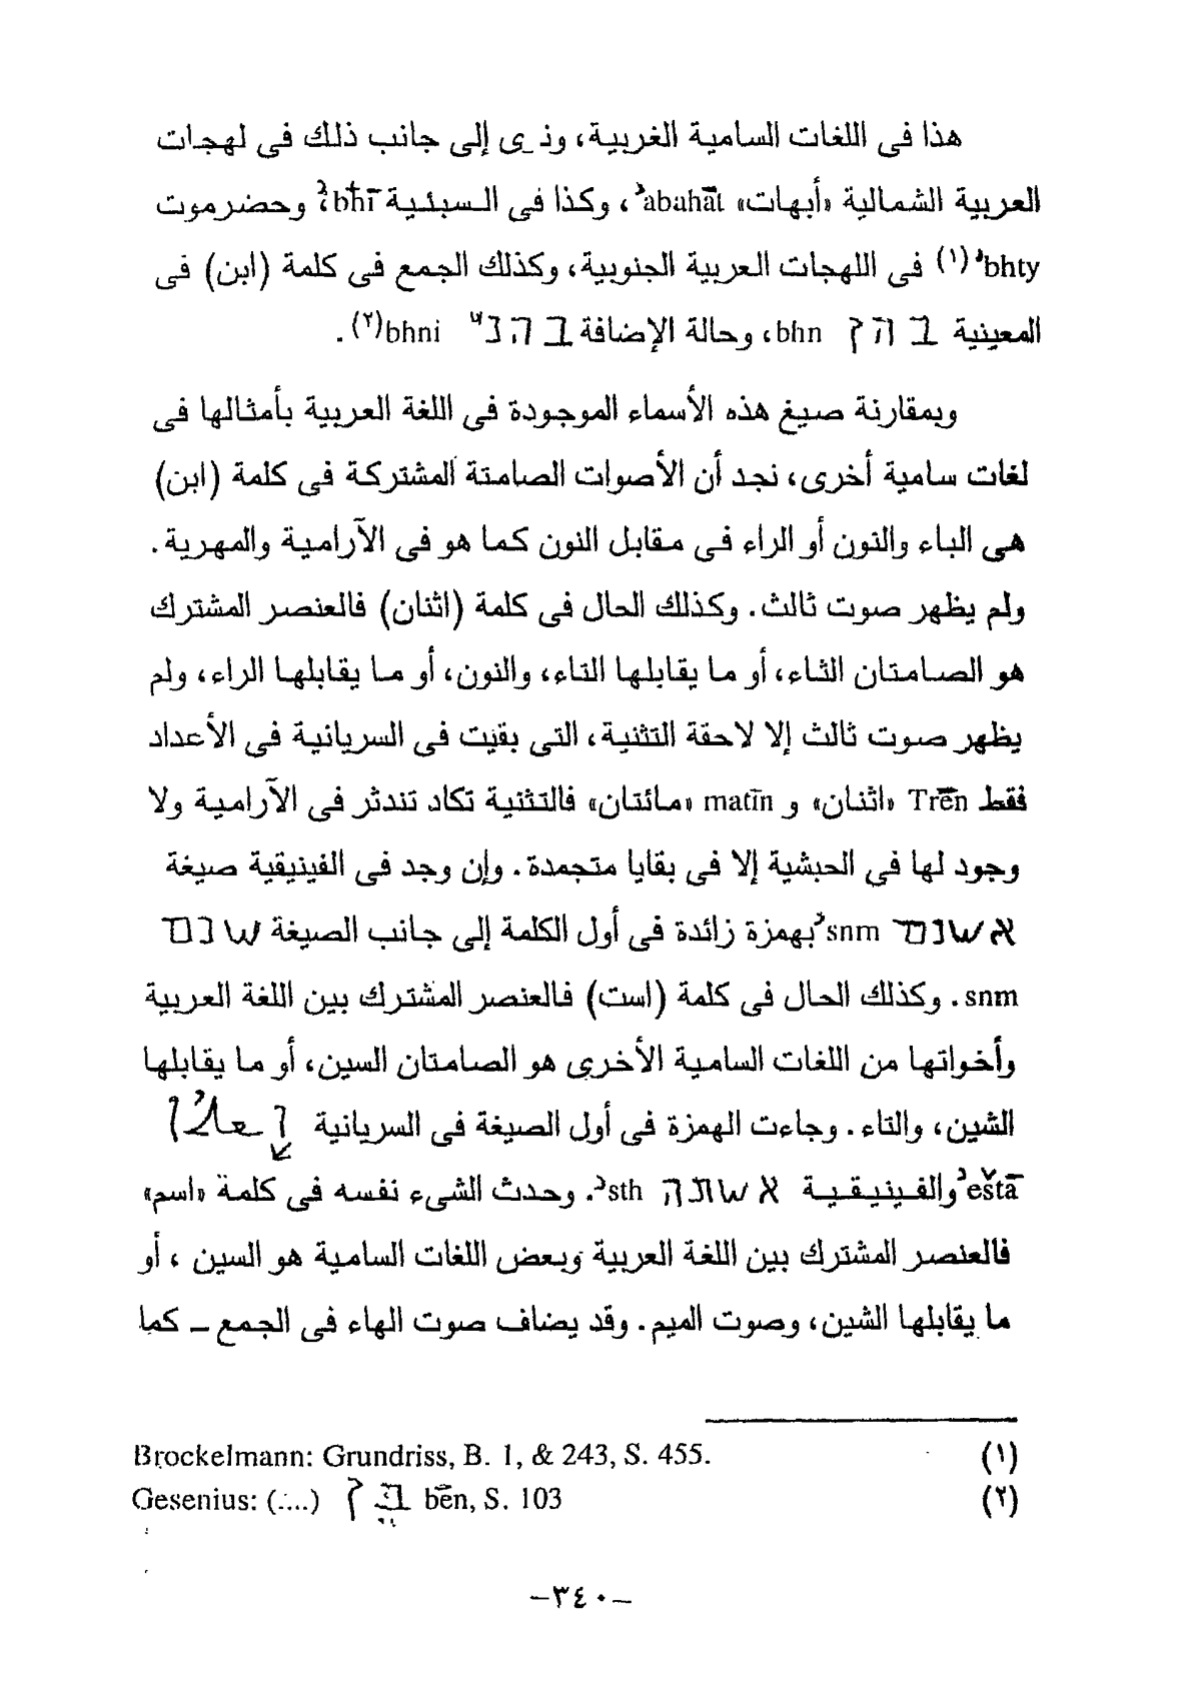 هذا فى اللغات السامية الغربية، ونرى إلى جانب ذلك فى لهجات
العربية الشمالية «أبهات» ʾabahāt، وكذا فى السبئية ʾbhtī وحضرموت
ʾbhty (١) فى اللهجات العربية الجنوبية، وكذلك الجمع فى كلمة (ابن) فى
المعينية בהן bhn، وحالة الإضافة בהני bhni(٢).
وبمقارنة صيغ هذه الأسماء الموجودة فى اللغة العربية بأمثالها فى
لغات سامية أخرى، نجد أن الأصوات الصامتة المشتركة فى كلمة (ابن)
هى الباء والنون أو الراء فى مقابل النون كما هو فى الآرامية والمهرية.
ولم يظهر صوت ثالث. وكذلك الحال فى كلمة (اثنان) فالعنصر المشترك
هو الصامتان الثاء، أو ما يقابلها التاء، والنون، أو ما يقابلها الراء، ولم
يظهر صوت ثالث إلا لاحقة التثنية، التى بقيت فى السريانية فى الأعداد
فقط Trēn «اثنان» و matīn «مائتان» فالتثنية تكاد تندثر فى الآرامية ولا
وجود لها فى الحبشية إلا فى بقايا متجمدة. وإن وجد فى الفينيقية صيغة
אשנם ʾsnm بهمزة زائدة فى أول الكلمة إلى جانب الصيغة שנם
snm. وكذلك الحال فى كلمة (است) فالعنصر المشترك بين اللغة العربية
وأخواتها من اللغات السامية الأخرى هو الصامتان السين، أو ما يقابلها
الشين، والتاء. وجاءت الهمزة فى أول الصيغة فى السريانية ܐܫܬܐ
ʾeštā والفينيقية אשתה ʾsth. وحدث الشىء نفسه فى كلمة «اسم»
فالعنصر المشترك بين اللغة العربية وبعض اللغات السامية هو السين ، أو
ما يقابلها الشين، وصوت الميم. وقد يضاف صوت الهاء فى الجمع ــ كما
(١) Brockelmann: Grundriss, B. 1, & 243, S. 455.
(٢) Gesenius: (....) בֵּן bēn, S. 103
–٣٤٠–